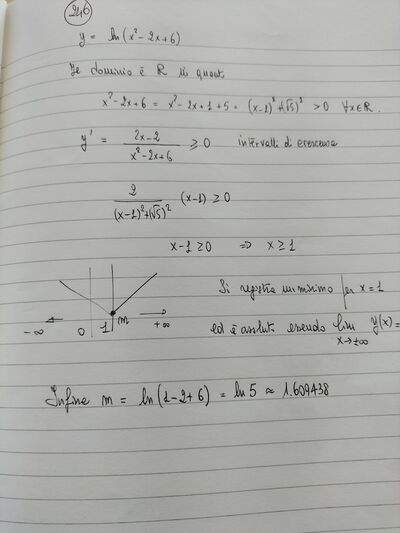 246
y = ln(x² - 2x + 6)
Il dominio è ℝ in quanto
x² - 2x + 6 = x² - 2x + 1 + 5 = (x-1)² + (√5)² > 0 ∀x∈ℝ.
y' = (2x-2)/(x² - 2x + 6) ≥ 0 intervalli di crescenza
2/((x-1)² + (√5)²) (x-1) ≥ 0
x - 1 ≥ 0 ⇒ x ≥ 1
Si registra un minimo per x = 1
-∞ 0 1 m +∞
ed è assoluto essendo lim x→±∞ y(x) =
Infine m = ln(1-2+6) = ln 5 ≈ 1.609438